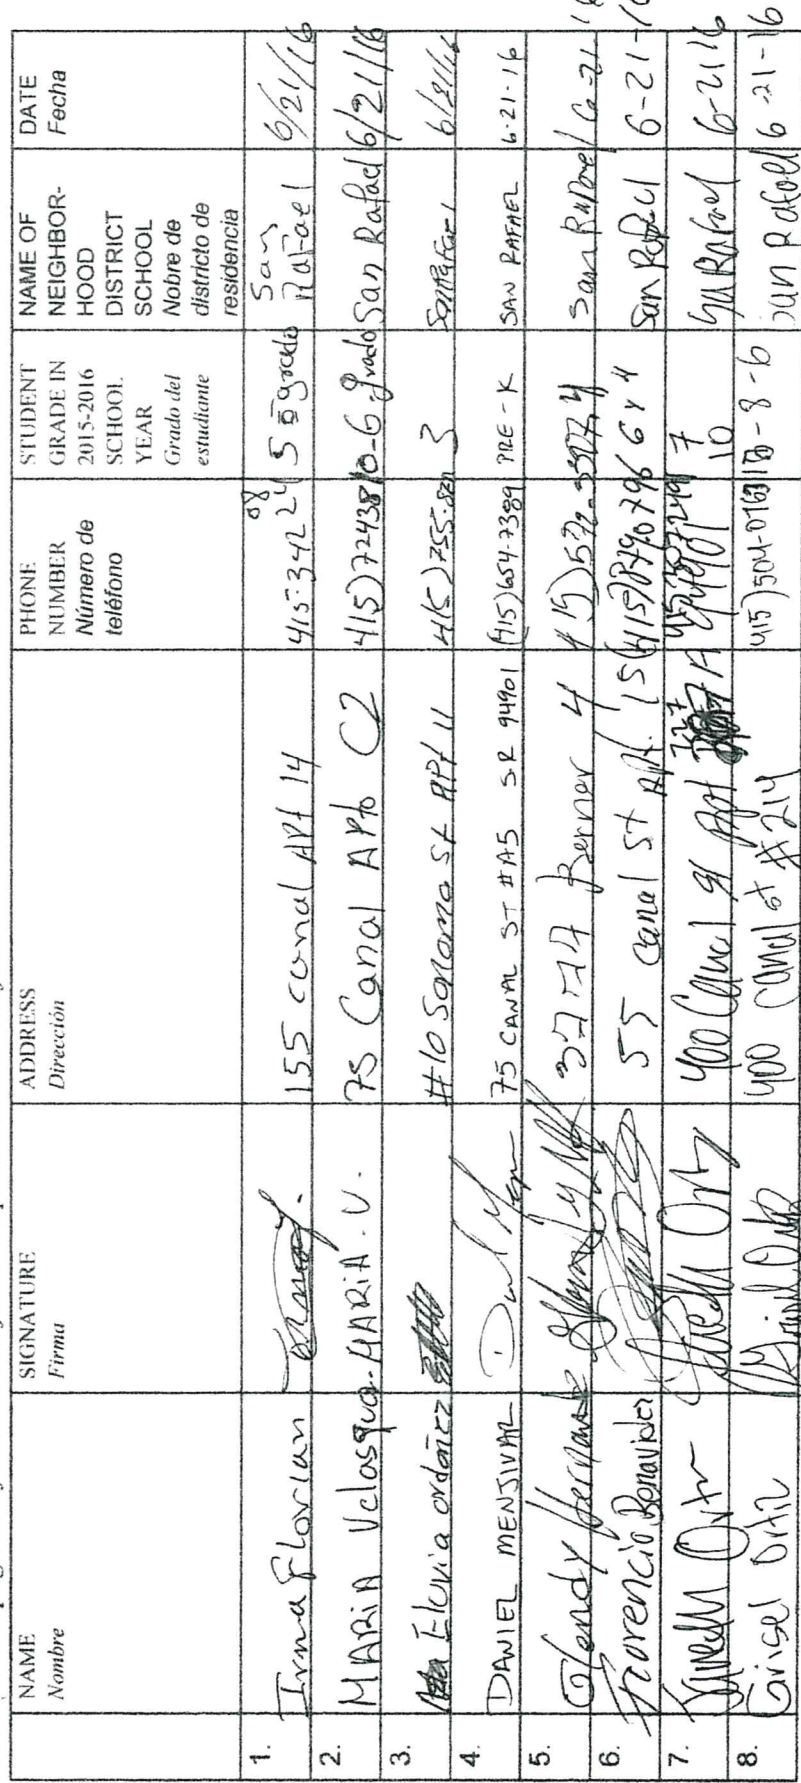 NAME
Nombre
SIGNATURE
Firma
ADDRESS
Dirección
PHONE
NUMBER
Número de
teléfono
STUDENT
GRADE IN
2015-2016
SCHOOL
YEAR
Grado del
estudiante
NAME OF
NEIGHBOR-
HOOD
DISTRICT
SCHOOL
Nobre de
districto de
residencia
DATE
Fecha
1. Irma Florian 155 canal APt 14 415 342 24 08 5 grado San Rafael 6/21/16
2. MARIA Velasquez MARIA. V. 75 Canal APto C2 415) 7243810 6 grado San Rafael 6/21/16
3. Eluvia ordoñez #10 Sonoma St APt 11 415) 755 3 San Rafael 6/21/16
4. DANIEL MENJIVAR 75 CANAL ST #A5 SR 94901 (415) 654-7389 PRE-K SAN RAFAEL 6-21-16
5. Glendy 4 San Rafael 6-21-16
6. Florencio Benavides 55 Canal St Apt. 15 6 y 4 San Rafael 6-21-16
7. Ortiz 400 Canal st Apt 7 10 San Rafael 6-21 16
8. Grisel Ortiz 400 canal st #214 415) 504-0163 8-6 San Rafael 6-21-16